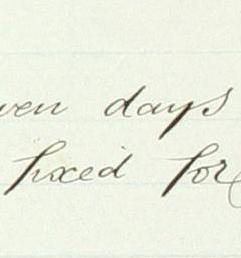 ven days
fixed for